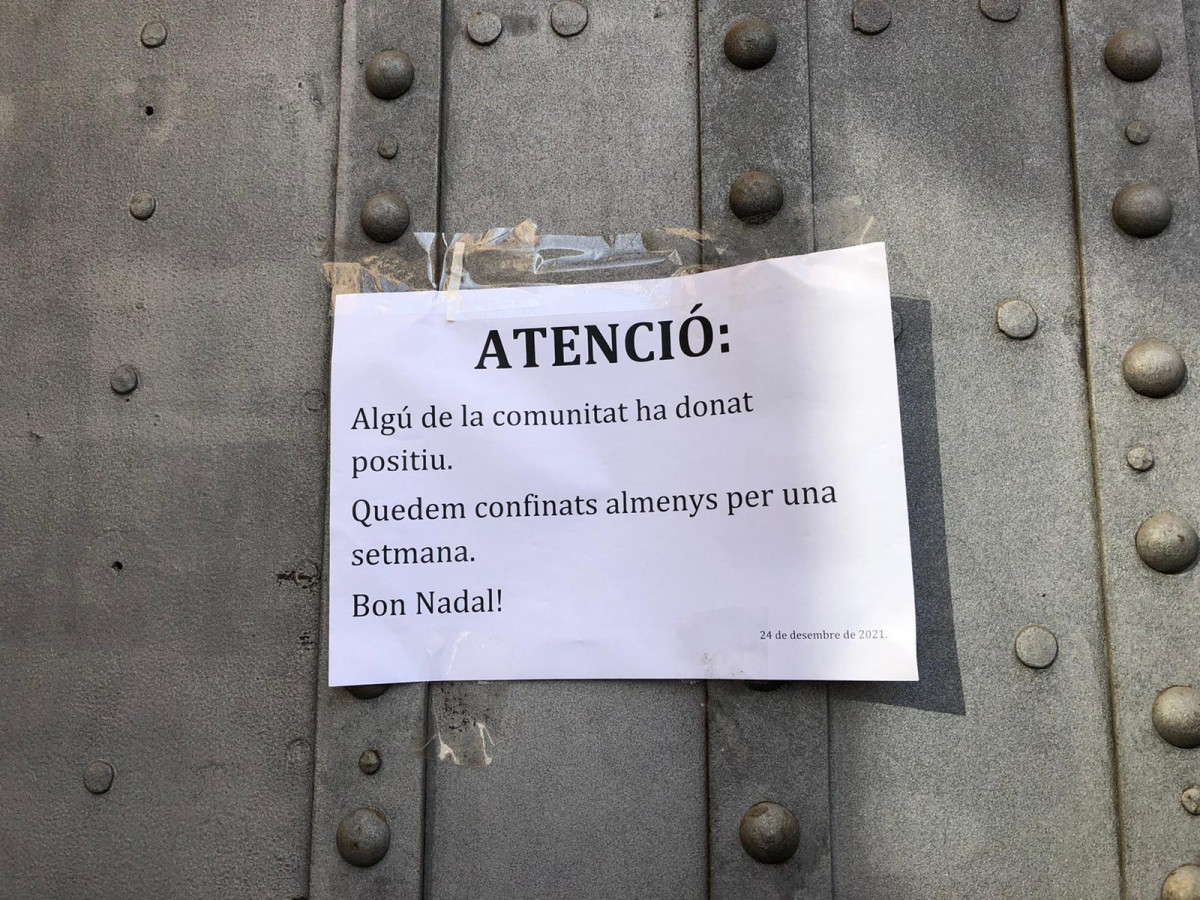 ATENCIÓ:
Algú de la comunitat ha donat
positiu.
Quedem confinats almenys per una
setmana.
Bon Nadal!
24 de desembre de 2021.